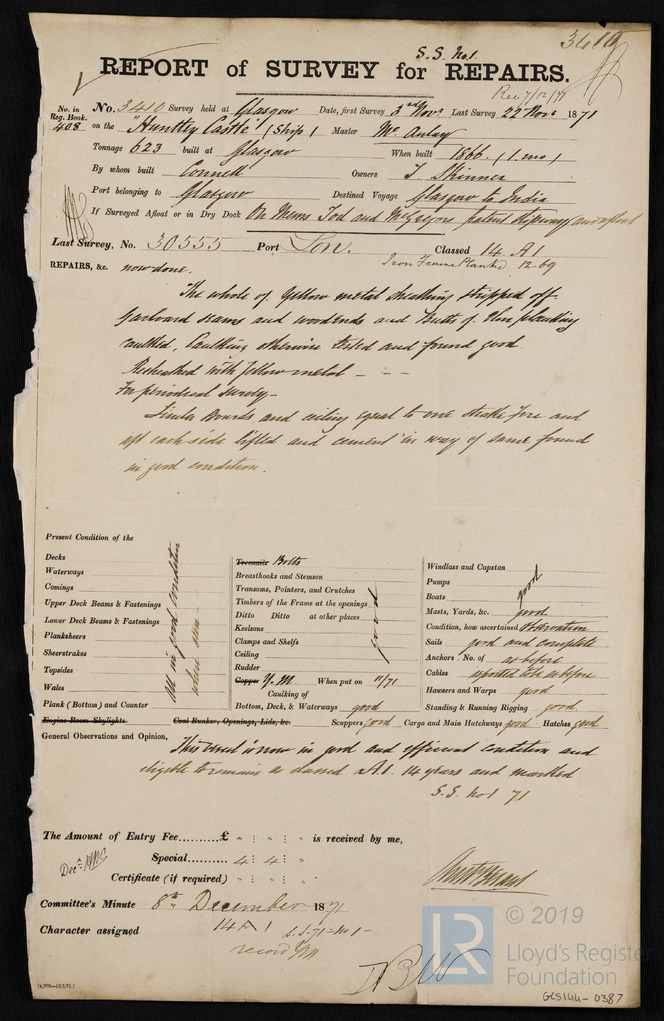 3410
S.S. No.1
REPORT of SURVEY for REPAIRS.
Rec 7/12/71
No. in Reg. Book 408
No. 3410 Survey held at Glasgow Date, first Survey 3rd Novr Last Survey 22 Novr 1871
on the "Huntley Castle" (Ship) Master Mc Aulay
Tonnage 623 built at Glasgow When built 1866.
By whom built Connell Owners T Skinner
Port belonging to Glasgow Destined Voyage Glasgow to India
If Surveyed Afloat or in Dry Dock On Messrs Tod and McGregors patent slipway and afloat
Last Survey, No. 30555 Port Lon. Classed 14 A1
Iron Frame Planked 12-69
REPAIRS, &c. now done.
The whole of yellow metal sheathing stripped off
Garboard seams and woodends and Butts of Elm planking
caulked, Caulking otherwise tested and found good.
Resheathed with yellow metal
For periodical Survey-
Limber Boards and ceiling equal to one strake fore and
aft each side lifted and cement in way of same found
in good condition.
Present Condition of the
Decks
Waterways
Comings
Upper Deck Beams & Fastenings
Lower Deck Beams & Fastenings
Planksheers
Sheerstrakes
Topsides
Wales
Plank (Bottom) and Counter
All in good condition
where seen -
Engine Room Skylights Coal Bunker, Openings, Lids, &c.
Treenails Bolts
Breasthooks and Stemson
Transoms, Pointers, and Crutches
Timbers of the Frame at the openings
Ditto Ditto at other places
Keelsons
Clamps and Shelfs
Ceiling
Rudder
good
Copper Y.M. When put on 11/71
Caulking of
Bottom, Deck, & Waterways good
Windlass and Capstan
Pumps
Boats
good
Masts, Yards, &c. good
Condition, how ascertained Observation
Sails good and complete
Anchors No. of as before
Cables reported to be as before
Hawsers and Warps good
Standing & Running Rigging good
Scuppers good Cargo and Main Hatchways good Hatches good
General Observations and Opinion,
This vessel is now in good and efficient condition and
eligible to remain as classed A.1. 14 years and marked
S.S. No 1 71
The Amount of Entry Fee..........£ " : " : " is received by me,
Special.......... 4 : 4 : "
Certificate (if required) " : " : "
Committee's Minute 8th December 1871
Character assigned 14 A 1 S.S. 71 - No 1 -
record YM
© 2019
LR
Lloyd's Register
Foundation
GLS144-0387